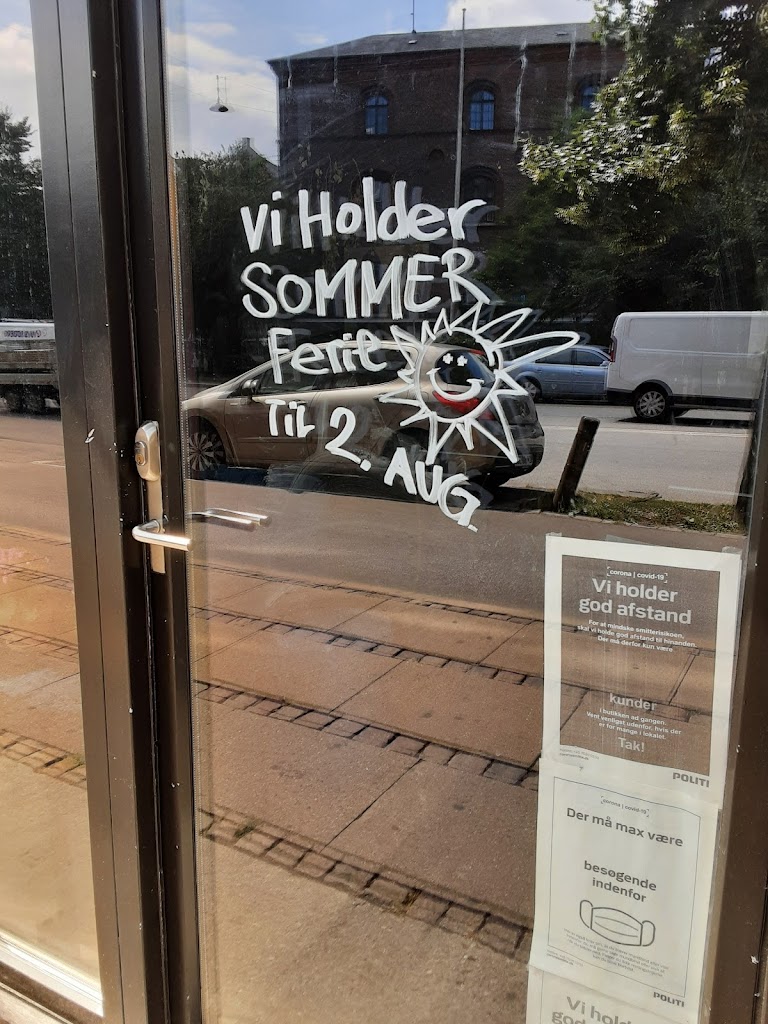 Vi Holder
SOMMER
Ferie
Til 2. AUG.
corona | covid-19
Vi holder
god afstand
For at mindske smitterisikoen,
skal vi holde god afstand til hinanden.
Der må derfor kun være
kunder
i butikken ad gangen.
Vent venligst udenfor, hvis der
er for mange i lokalet.
Tak!
POLITI
corona | covid-19
Der må max være
besøgende
indenfor
POLITI
Vi hold
god